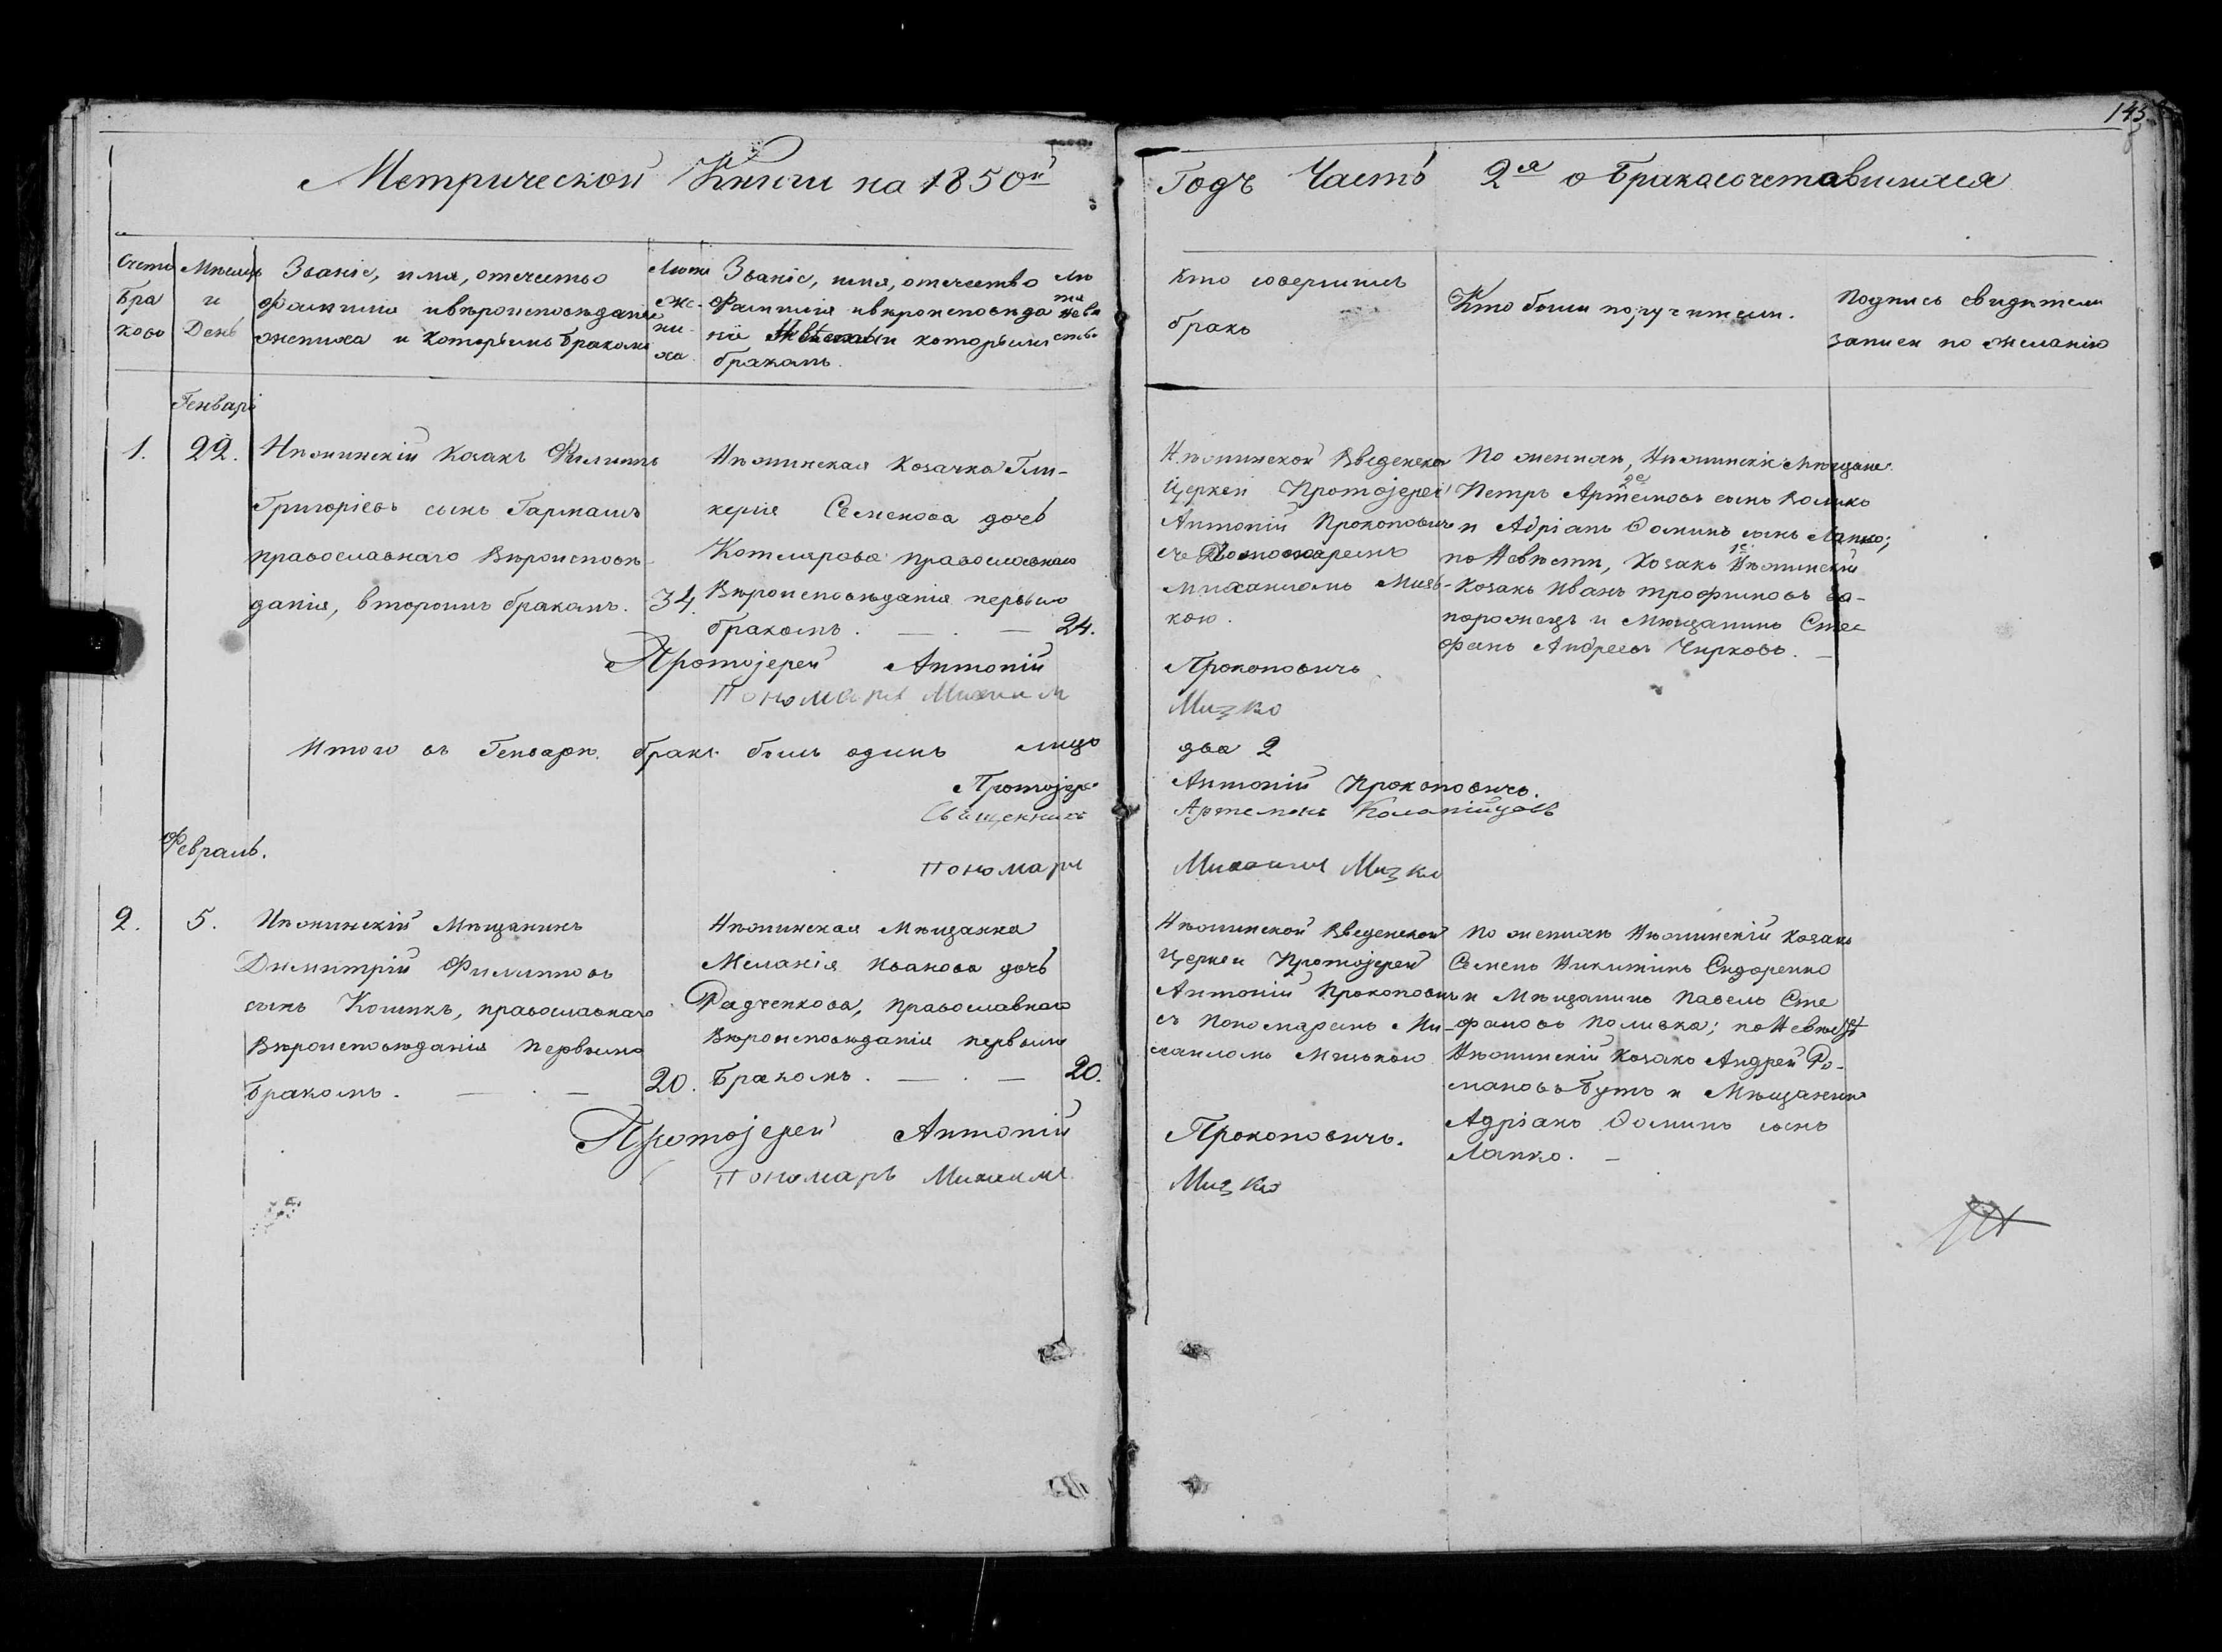 143
Метрической Книги на 1850й
Годъ Часть 2я о Бракосочетавшихся
Счетъ Бра ковъ
Мѣсяцъ и День
Званіе, имя, отечество
Фамилія и вѣроисповѣданіе
жениха и Которымъ бракомъ
Лѣта же- ни- ха
Званіе, имя, отечество
Фамилія и вѣроисповѣда
ніе Невѣсты и которымъ
бракомъ.
Лѣ та невѣ сты
Кто совершилъ
бракъ
Кто были поручители.
Подпись свидѣтелей
записи по желанію
Генварь
1.
22.
Нѣжинскій Козакъ Филиппъ
Григоріевъ сынъ Гармашъ
православнаго Вѣроисповѣ-
данія, вторымъ бракомъ.
34.
Нѣжинская Козачка Гли-
керія Семенова дочь
Котлярова православнаго
Вѣроисповѣданія первымъ
бракомъ. — . —
24.
Нѣжинской Введенской
Церкви Протоіерей
Антоній Прокоповичъ
съ Пономаремъ
Михаиломъ Мизь-
кою.
По женихѣ, Нѣжинскіе Мѣщане
2е
Петръ Артемовъ сынъ Волико
и Адріанъ Ѳоминъ сынъ Лапко;
1е
по Невѣсти, Козакъ Нѣжинскій
Козакъ Иванъ Трофимовъ За-
порожецъ и Мѣщанинъ Сте-
фанъ Андреевъ Чирковъ. —
Протоіерей Антоній Прокоповичъ
Пономарь Михаилъ Мизко
Итого въ Генварѣ. бракъ былъ одинъ лицъ два 2
Протоіерей Антоній Прокоповичъ.
Священникъ Артемонъ
Пономарь Михаилъ Мизко
Февраль.
2.
5.
Нѣжинскій Мѣщанинъ
Димитрій Филипповъ
сынъ Кошикъ, православнаго
Вѣроисповѣданія Первымъ
Бракомъ. — . —
20.
Нѣжинская Мѣщанка
Меланія Иванова дочь
Радченкова, православнаго
Вѣроисповѣданія первымъ
Бракомъ. — . —
20.
Нѣжинской Введенской
Церкви Протоіерей
Антоній Прокоповичъ
съ Пономаремъ Ми-
хаиломъ Мизькою
По женихѣ Нѣжинскій Козакъ
Семенъ Никитинъ Сидоренко
и Мѣщанинъ Павелъ Сте
фановъ Поливка; по Невѣстѣ
Нѣжинскій Козакъ Андрей Ро-
мановъ Бутъ и Мѣщанинъ
Адріанъ Ѳоминъ сынъ
Лапко. —
Протоіерей Антоній Прокоповичъ.
Пономарь Михаилъ Мизко